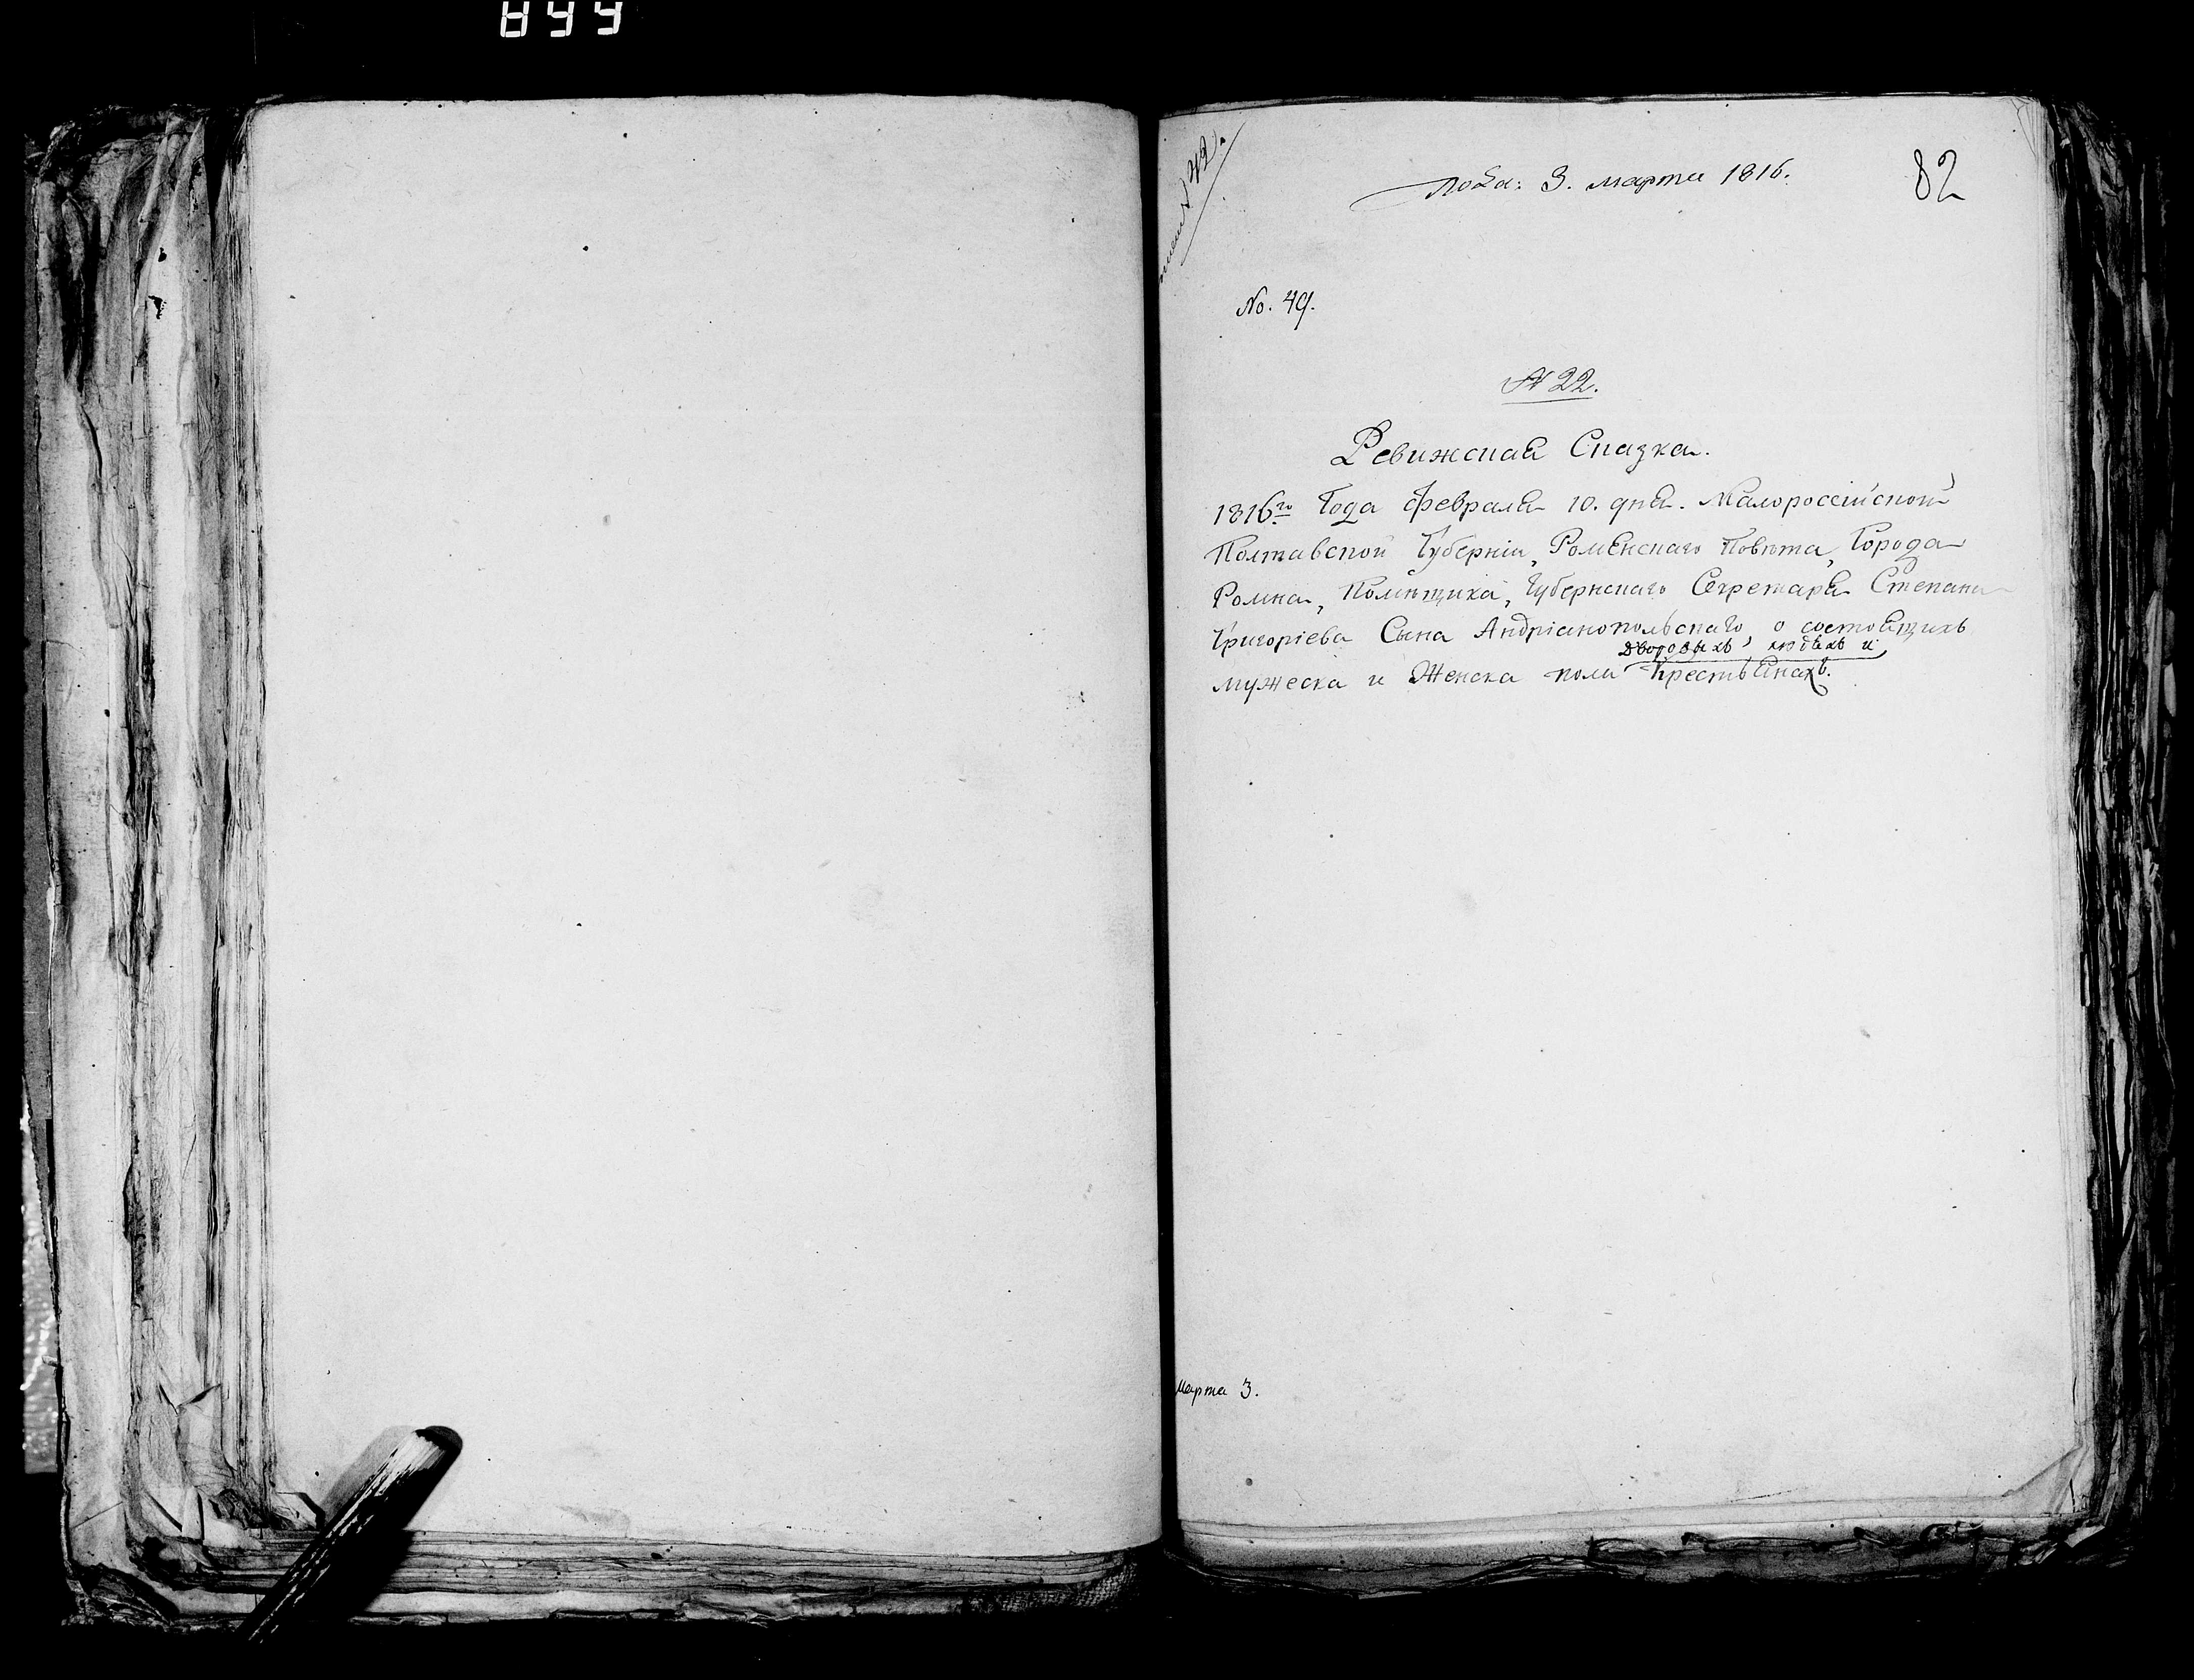 пода: 3. марта 1816.
82
No. 49.
№ 22.
Ревижская Сказка.
1816го Года февраля 10. дня. Малороссійской
Полтавской Губерніи, Роменскаго Повѣта, Города
Ромна, Помѣщика, Губернскаго Секретаря Степана
Григоріева Сына Андріанопольскаго, о состоящихъ
дворовыхъ людяхъ и
мужеска и Женска пола Крестьянахъ.
Марта 3.